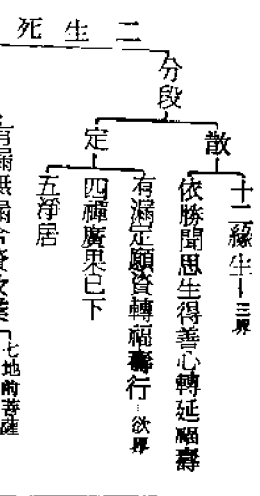 二生死
分段
散
十二緣生 三界
依勝聞思生得善心轉延福壽
定
有漏定願資轉福壽行 欲界
四禪廣果已下
五淨居
七地前菩薩